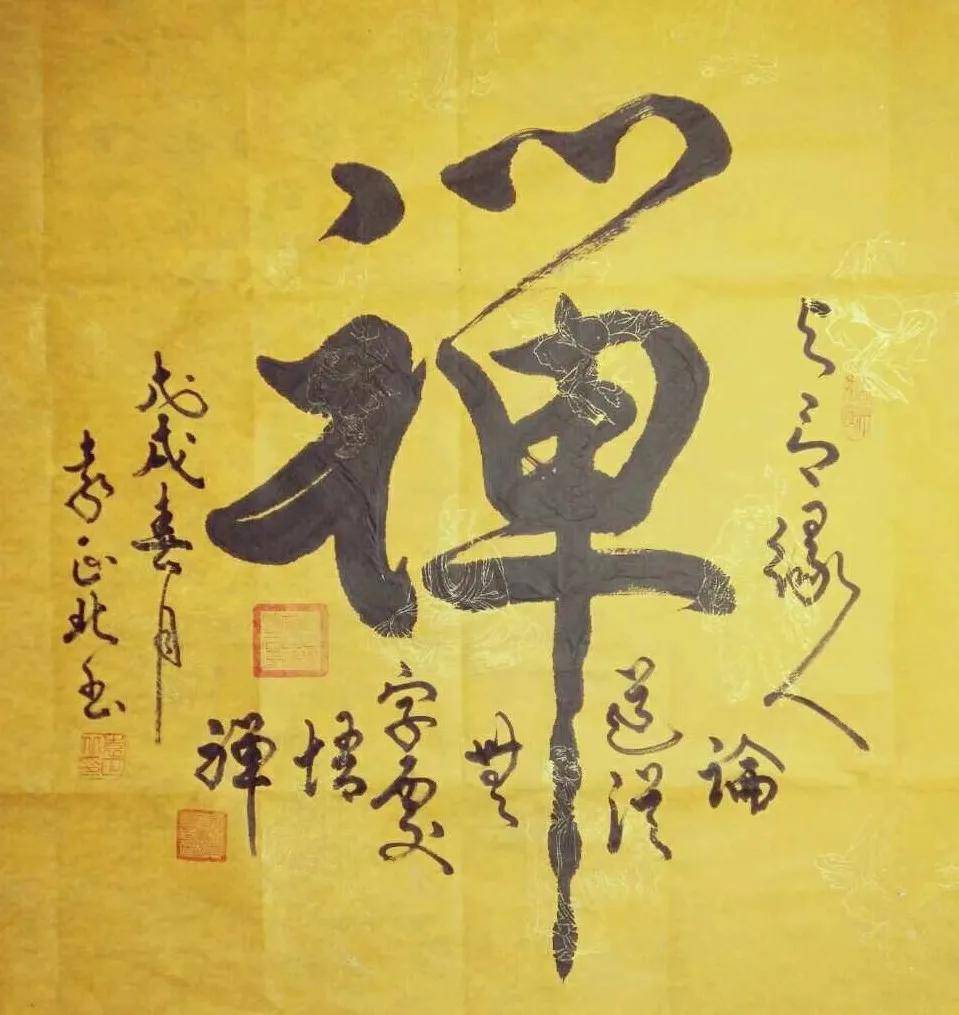 禪
与有緣人
論
道從
無
字處
悟
禪
戊戌春月
袁正北書